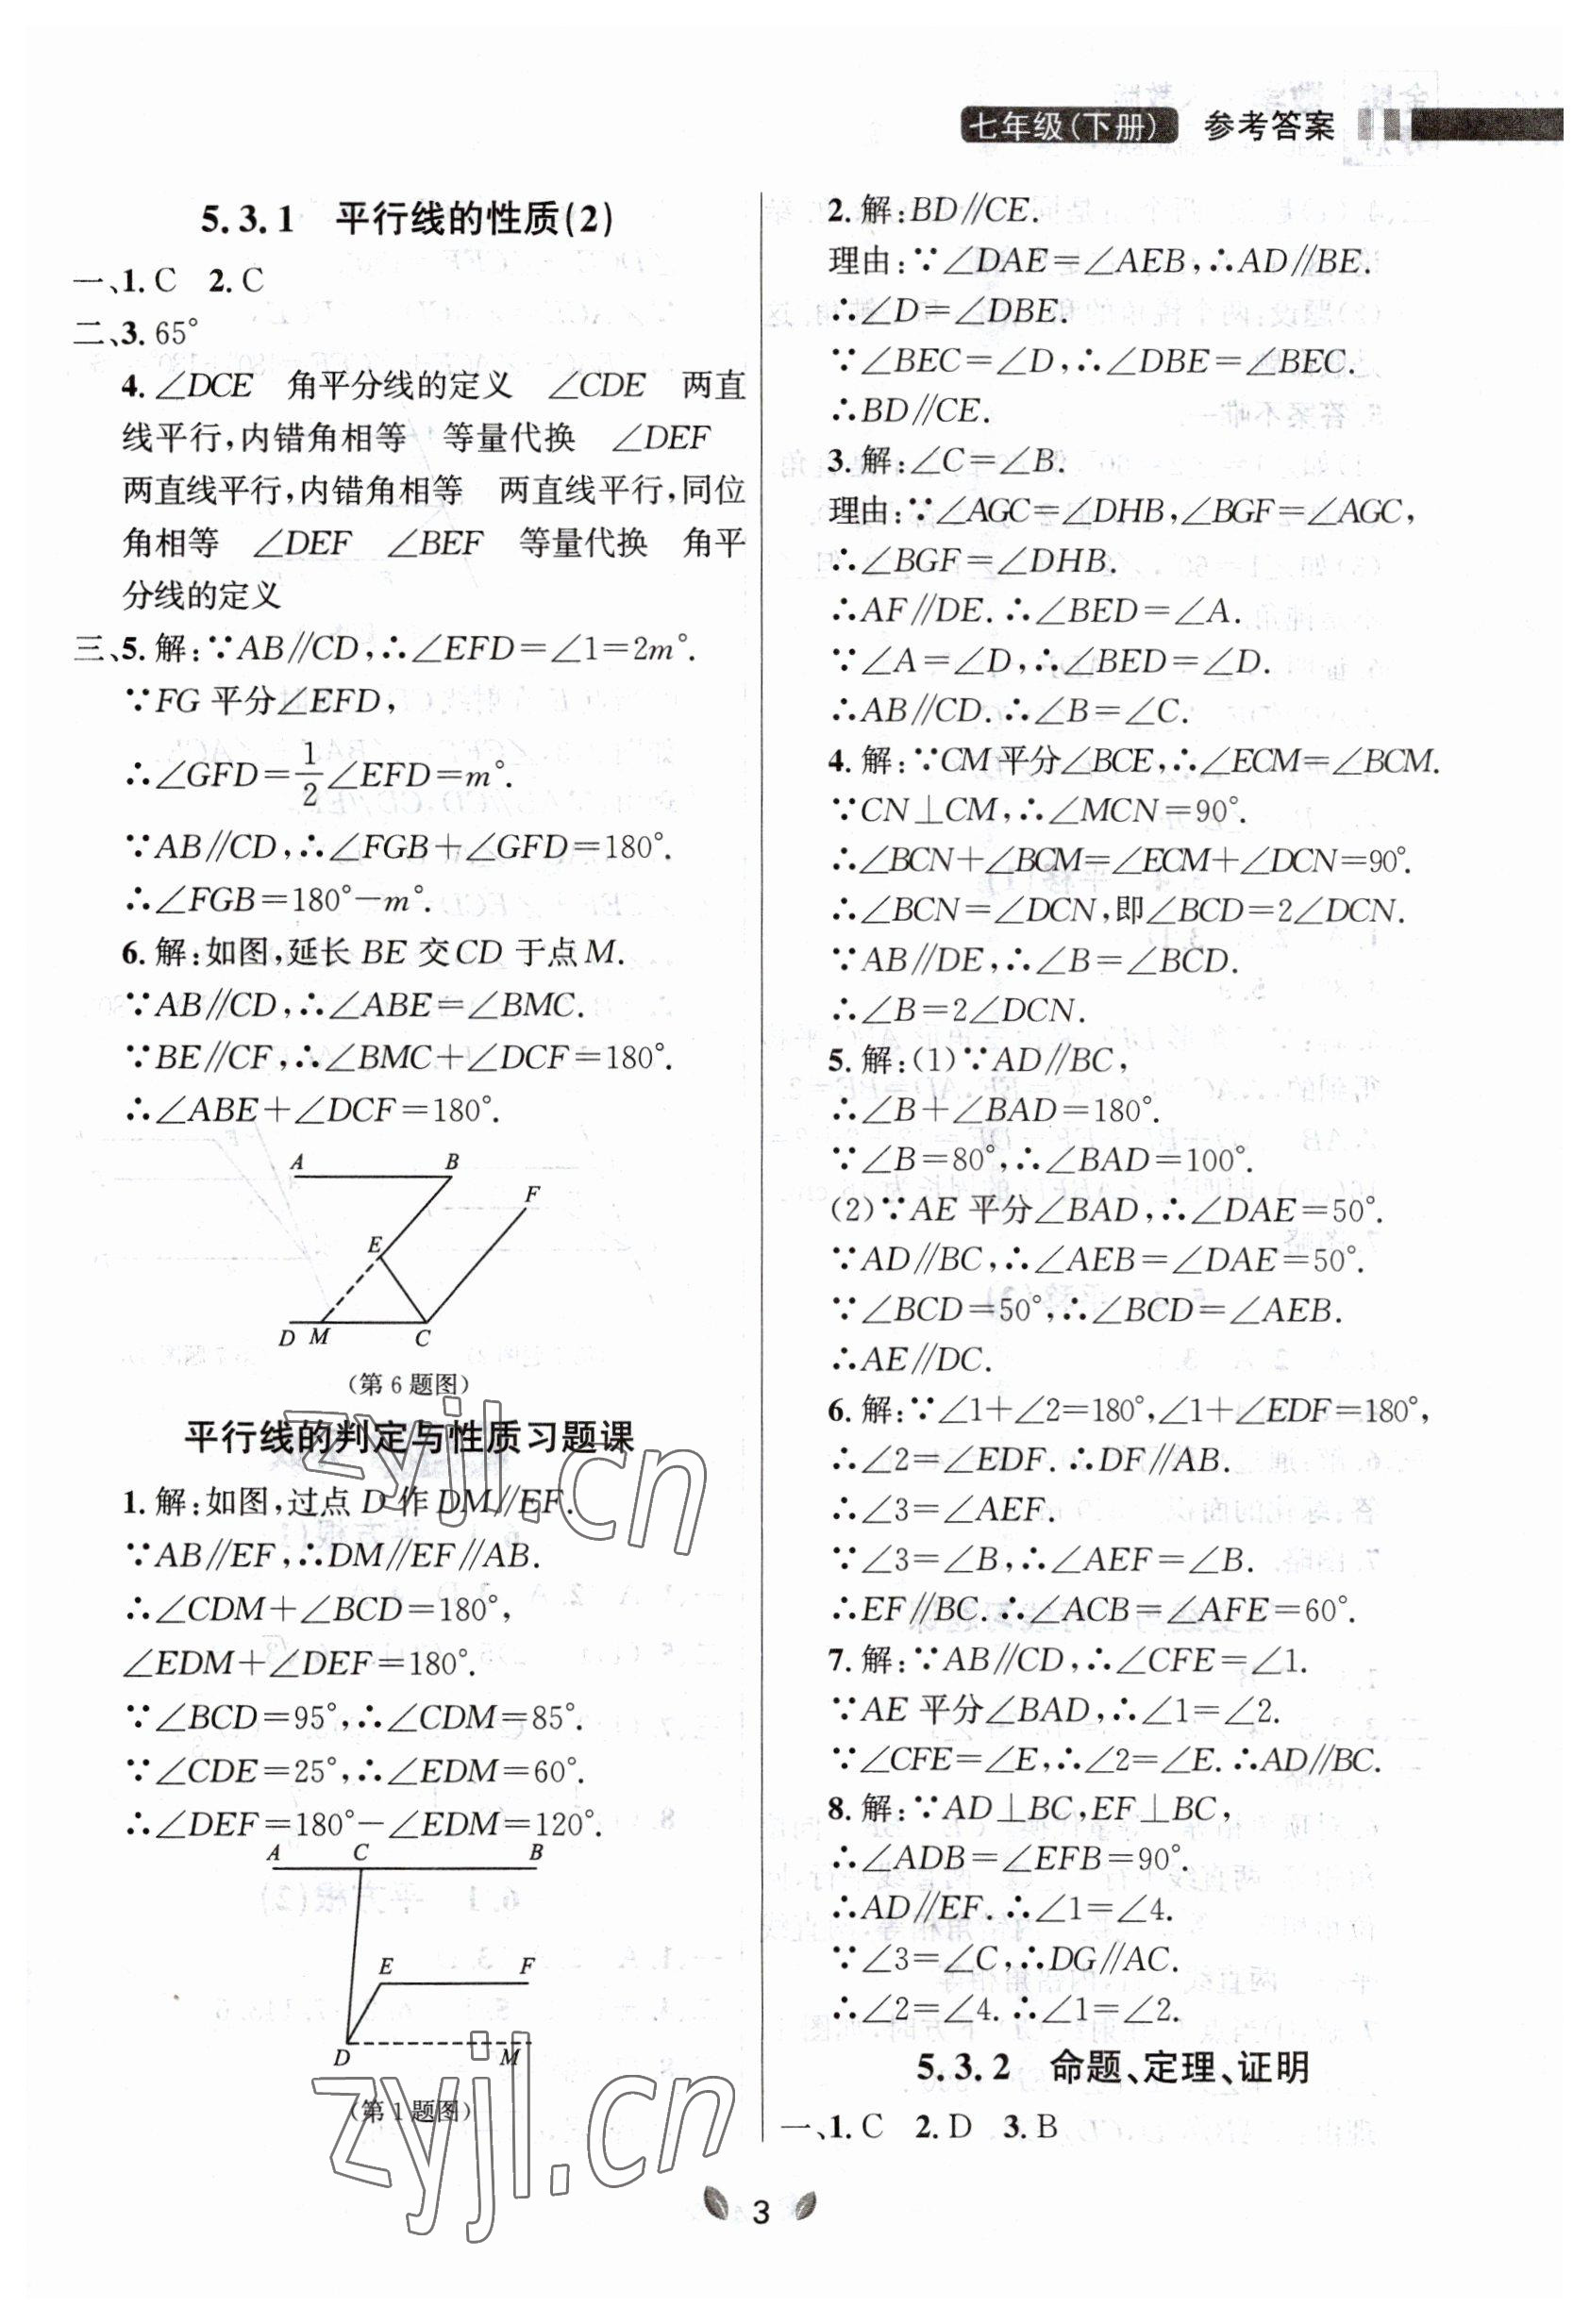 七年级(下册) 参考答案
5.3.1 平行线的性质(2)
一、1. C 2. C
二、3. 65°
4. ∠DCE 角平分线的定义 ∠CDE 两直
线平行,内错角相等 等量代换 ∠DEF
两直线平行,内错角相等 两直线平行,同位
角相等 ∠DEF ∠BEF 等量代换 角平
分线的定义
三、5. 解:∵AB∥CD,∴∠EFD=∠1=2m°.
∵FG 平分∠EFD,
∴∠GFD=1/2∠EFD=m°.
∵AB∥CD,∴∠FGB+∠GFD=180°.
∴∠FGB=180°−m°.
6. 解:如图,延长 BE 交 CD 于点 M.
∵AB∥CD,∴∠ABE=∠BMC.
∵BE∥CF,∴∠BMC+∠DCF=180°.
∴∠ABE+∠DCF=180°.
A B
F
E
D M C
(第 6 题图)
平行线的判定与性质习题课
1. 解:如图,过点 D 作 DM∥EF.
∵AB∥EF,∴DM∥EF∥AB.
∴∠CDM+∠BCD=180°,
∠EDM+∠DEF=180°.
∵∠BCD=95°,∴∠CDM=85°.
∵∠CDE=25°,∴∠EDM=60°.
∴∠DEF=180°−∠EDM=120°.
A C B
E F
D M
(第 1 题图)
2. 解:BD∥CE.
理由:∵∠DAE=∠AEB,∴AD∥BE.
∴∠D=∠DBE.
∵∠BEC=∠D,∴∠DBE=∠BEC.
∴BD∥CE.
3. 解:∠C=∠B.
理由:∵∠AGC=∠DHB,∠BGF=∠AGC,
∴∠BGF=∠DHB.
∴AF∥DE.∴∠BED=∠A.
∵∠A=∠D,∴∠BED=∠D.
∴AB∥CD.∴∠B=∠C.
4. 解:∵CM 平分∠BCE,∴∠ECM=∠BCM.
∵CN⊥CM,∴∠MCN=90°.
∴∠BCN+∠BCM=∠ECM+∠DCN=90°.
∴∠BCN=∠DCN,即∠BCD=2∠DCN.
∵AB∥DE,∴∠B=∠BCD.
∴∠B=2∠DCN.
5. 解:(1)∵AD∥BC,
∴∠B+∠BAD=180°.
∵∠B=80°,∴∠BAD=100°.
(2)∵AE 平分∠BAD,∴∠DAE=50°.
∵AD∥BC,∴∠AEB=∠DAE=50°.
∵∠BCD=50°,∴∠BCD=∠AEB.
∴AE∥DC.
6. 解:∵∠1+∠2=180°,∠1+∠EDF=180°,
∴∠2=∠EDF.∴DF∥AB.
∴∠3=∠AEF.
∵∠3=∠B,∴∠AEF=∠B.
∴EF∥BC.∴∠ACB=∠AFE=60°.
7. 解:∵AB∥CD,∴∠CFE=∠1.
∵AE 平分∠BAD,∴∠1=∠2.
∵∠CFE=∠E,∴∠2=∠E.∴AD∥BC.
8. 解:∵AD⊥BC,EF⊥BC,
∴∠ADB=∠EFB=90°.
∴AD∥EF.∴∠1=∠4.
∵∠3=∠C,∴DG∥AC.
∴∠2=∠4.∴∠1=∠2.
5.3.2 命题、定理、证明
一、1. C 2. D 3. B
3
zyjl.cn
zyjl.cn